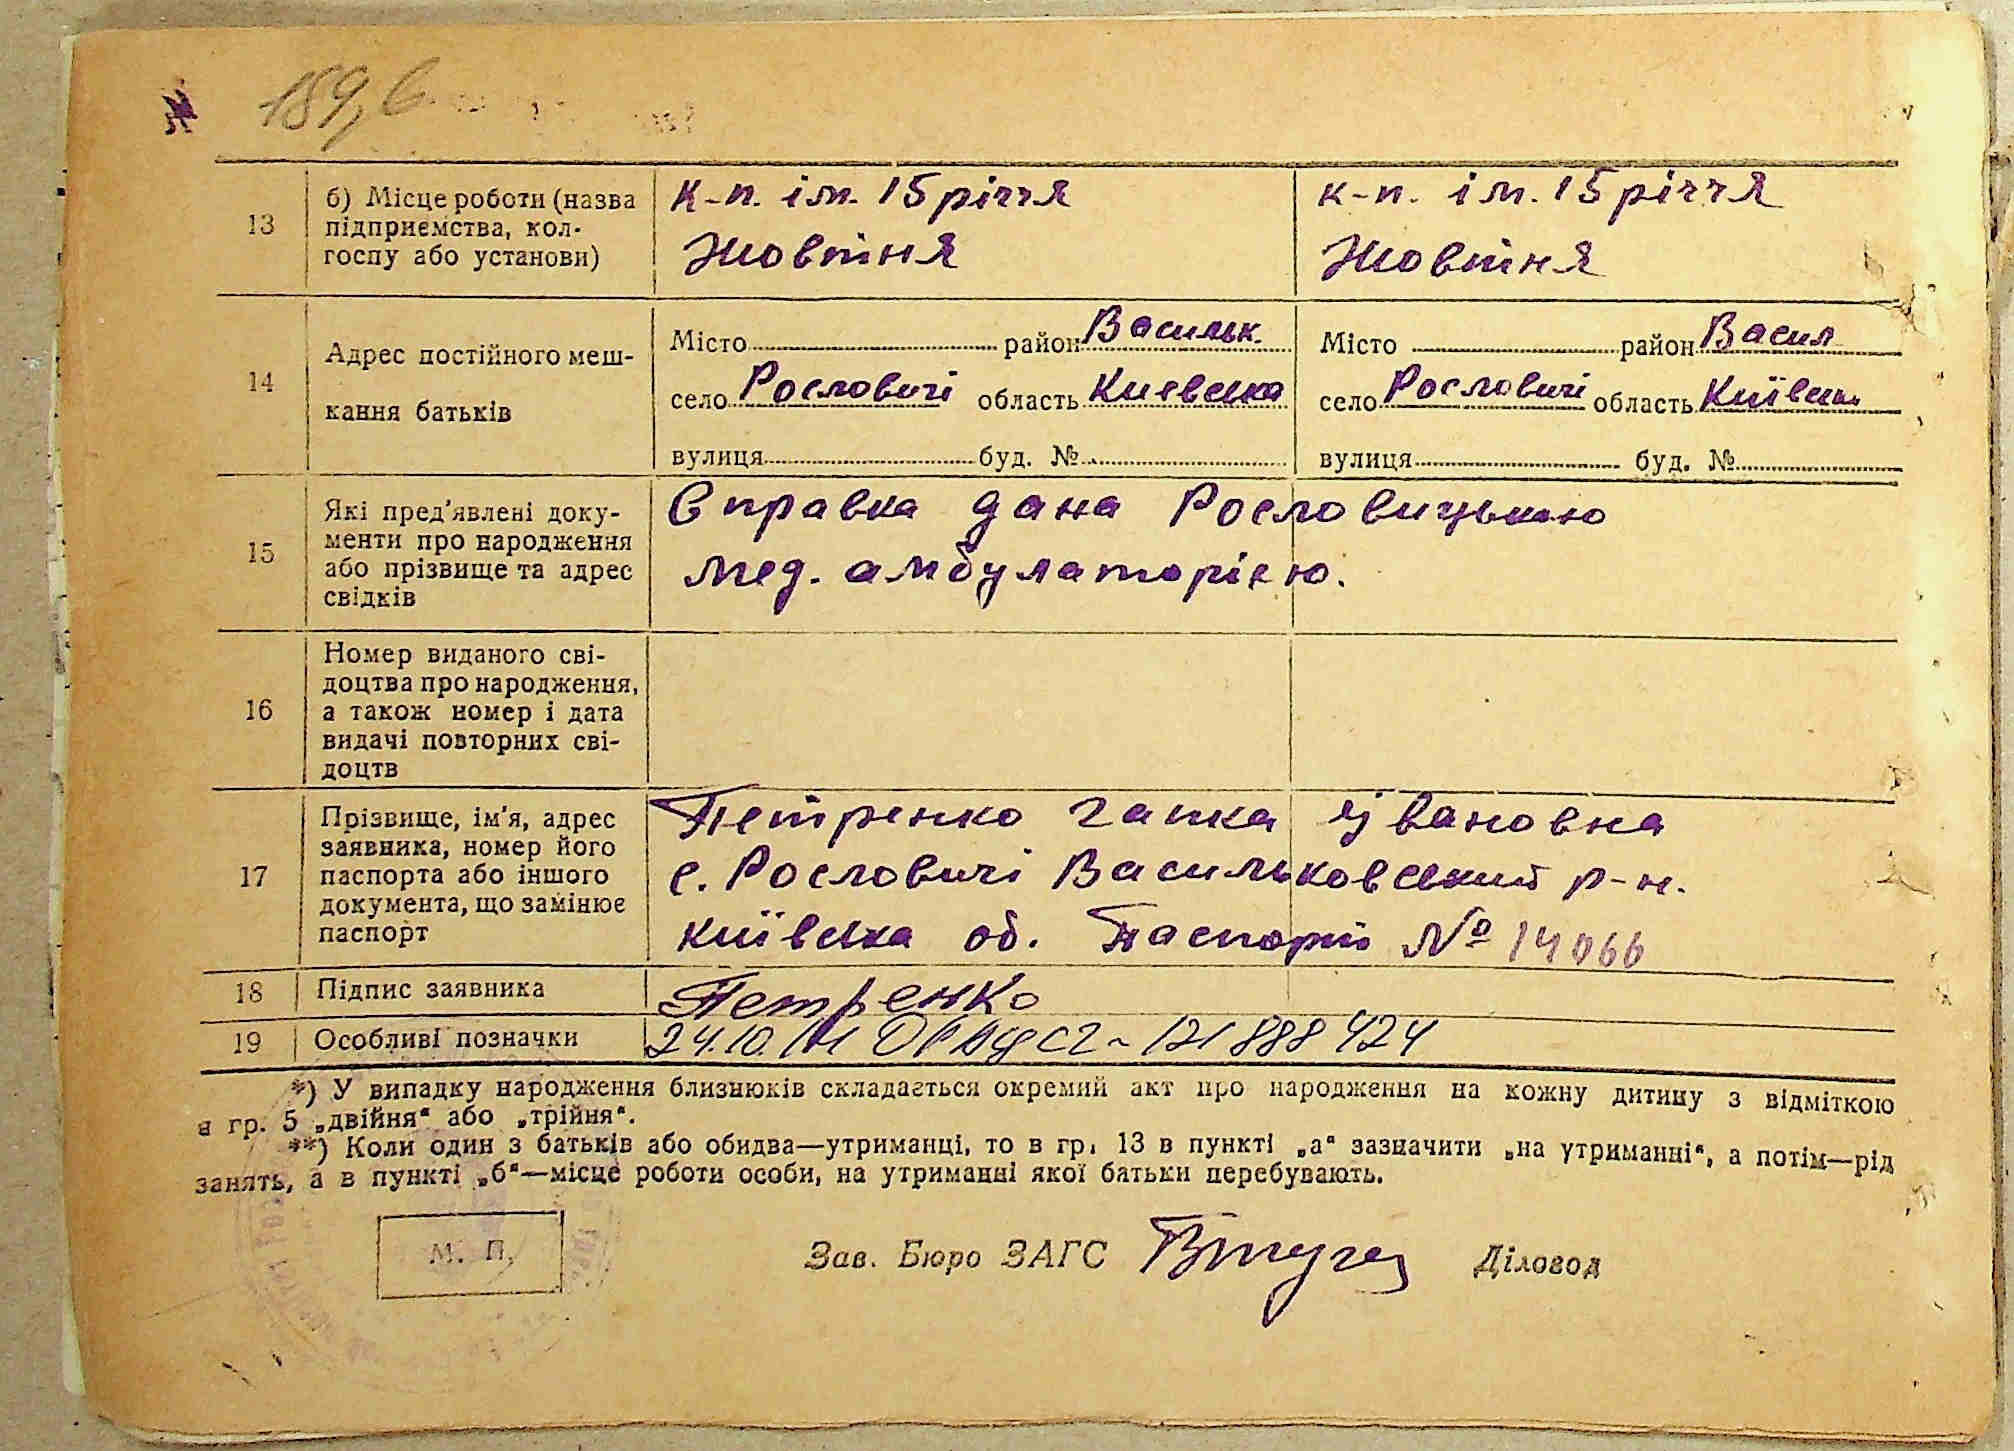 189, б
13
б) Місце роботи (назва
підприємства, кол-
госпу або установи)
к-п. ім. 15 річчя
Жовтня
к-п. ім. 15 річчя
Жовтня
14
Адрес постійного меш-
кання батьків
Місто район Васильк.
село Рословичі область Киевська
вулиця буд. №
Місто район Васил
село Рословичі область Київськ
вулиця буд. №
15
Які пред'явлені доку-
менти про народження
або прізвище та адрес
свідків
Справка дана Рословицькою
мед. амбулаторією.
16
Номер виданого сві-
доцтва про народження,
а також номер і дата
видачі повторних сві-
доцтв
17
Прізвище, ім'я, адрес
заявника, номер його
паспорта або іншого
документа, що замінює
паспорт
Петренко Гапка Івановна
с. Рословичі Васильковський р-н.
київська об. Паспорт № 14066
18
Підпис заявника
Петренко
19
Особливі позначки
24.10. 121888424
*) У випадку народження близнюків складається окремий акт про народження на кожну дитину з відміткою
в гр. 5 „двійня“ або „трійня“.
**) Коли один з батьків або обидва—утриманці, то в гр. 13 в пункті „а“ зазначити „на утриманні“, а потім—рід
занять, а в пункті „б“—місце роботи особи, на утриманні якої батьки перебувають.
М. П.
Зав. Бюро ЗАГС
Діловод